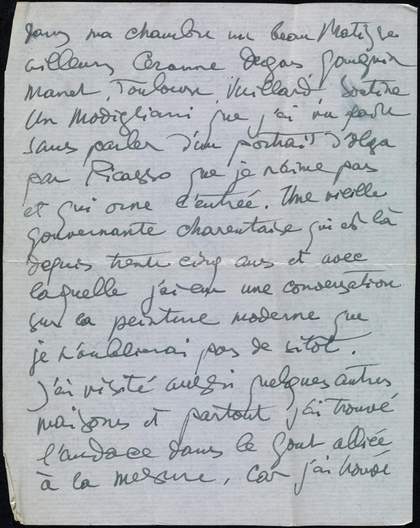 dans ma chambre un beau Matisse
ailleurs Cezanne Degas Gauguin
Manet, Toulouse, Vuillard, Soutine
un Modigliani que j'ai vu
sans parler d'un portrait d'Olga
par Picasso que je n'aime pas
et qui orne l'entrée. Une vieille
gouvernante charentaise qui est là
depuis trente cinq ans et avec
laquelle j'ai eu une conversation
sur la peinture moderne que
je n'oublierai pas de sitôt.
J'ai visité aussi quelques autres
maisons et partout j'ai trouvé
l'audace dans le gout alliée
à la mesure, car j'ai trouvé